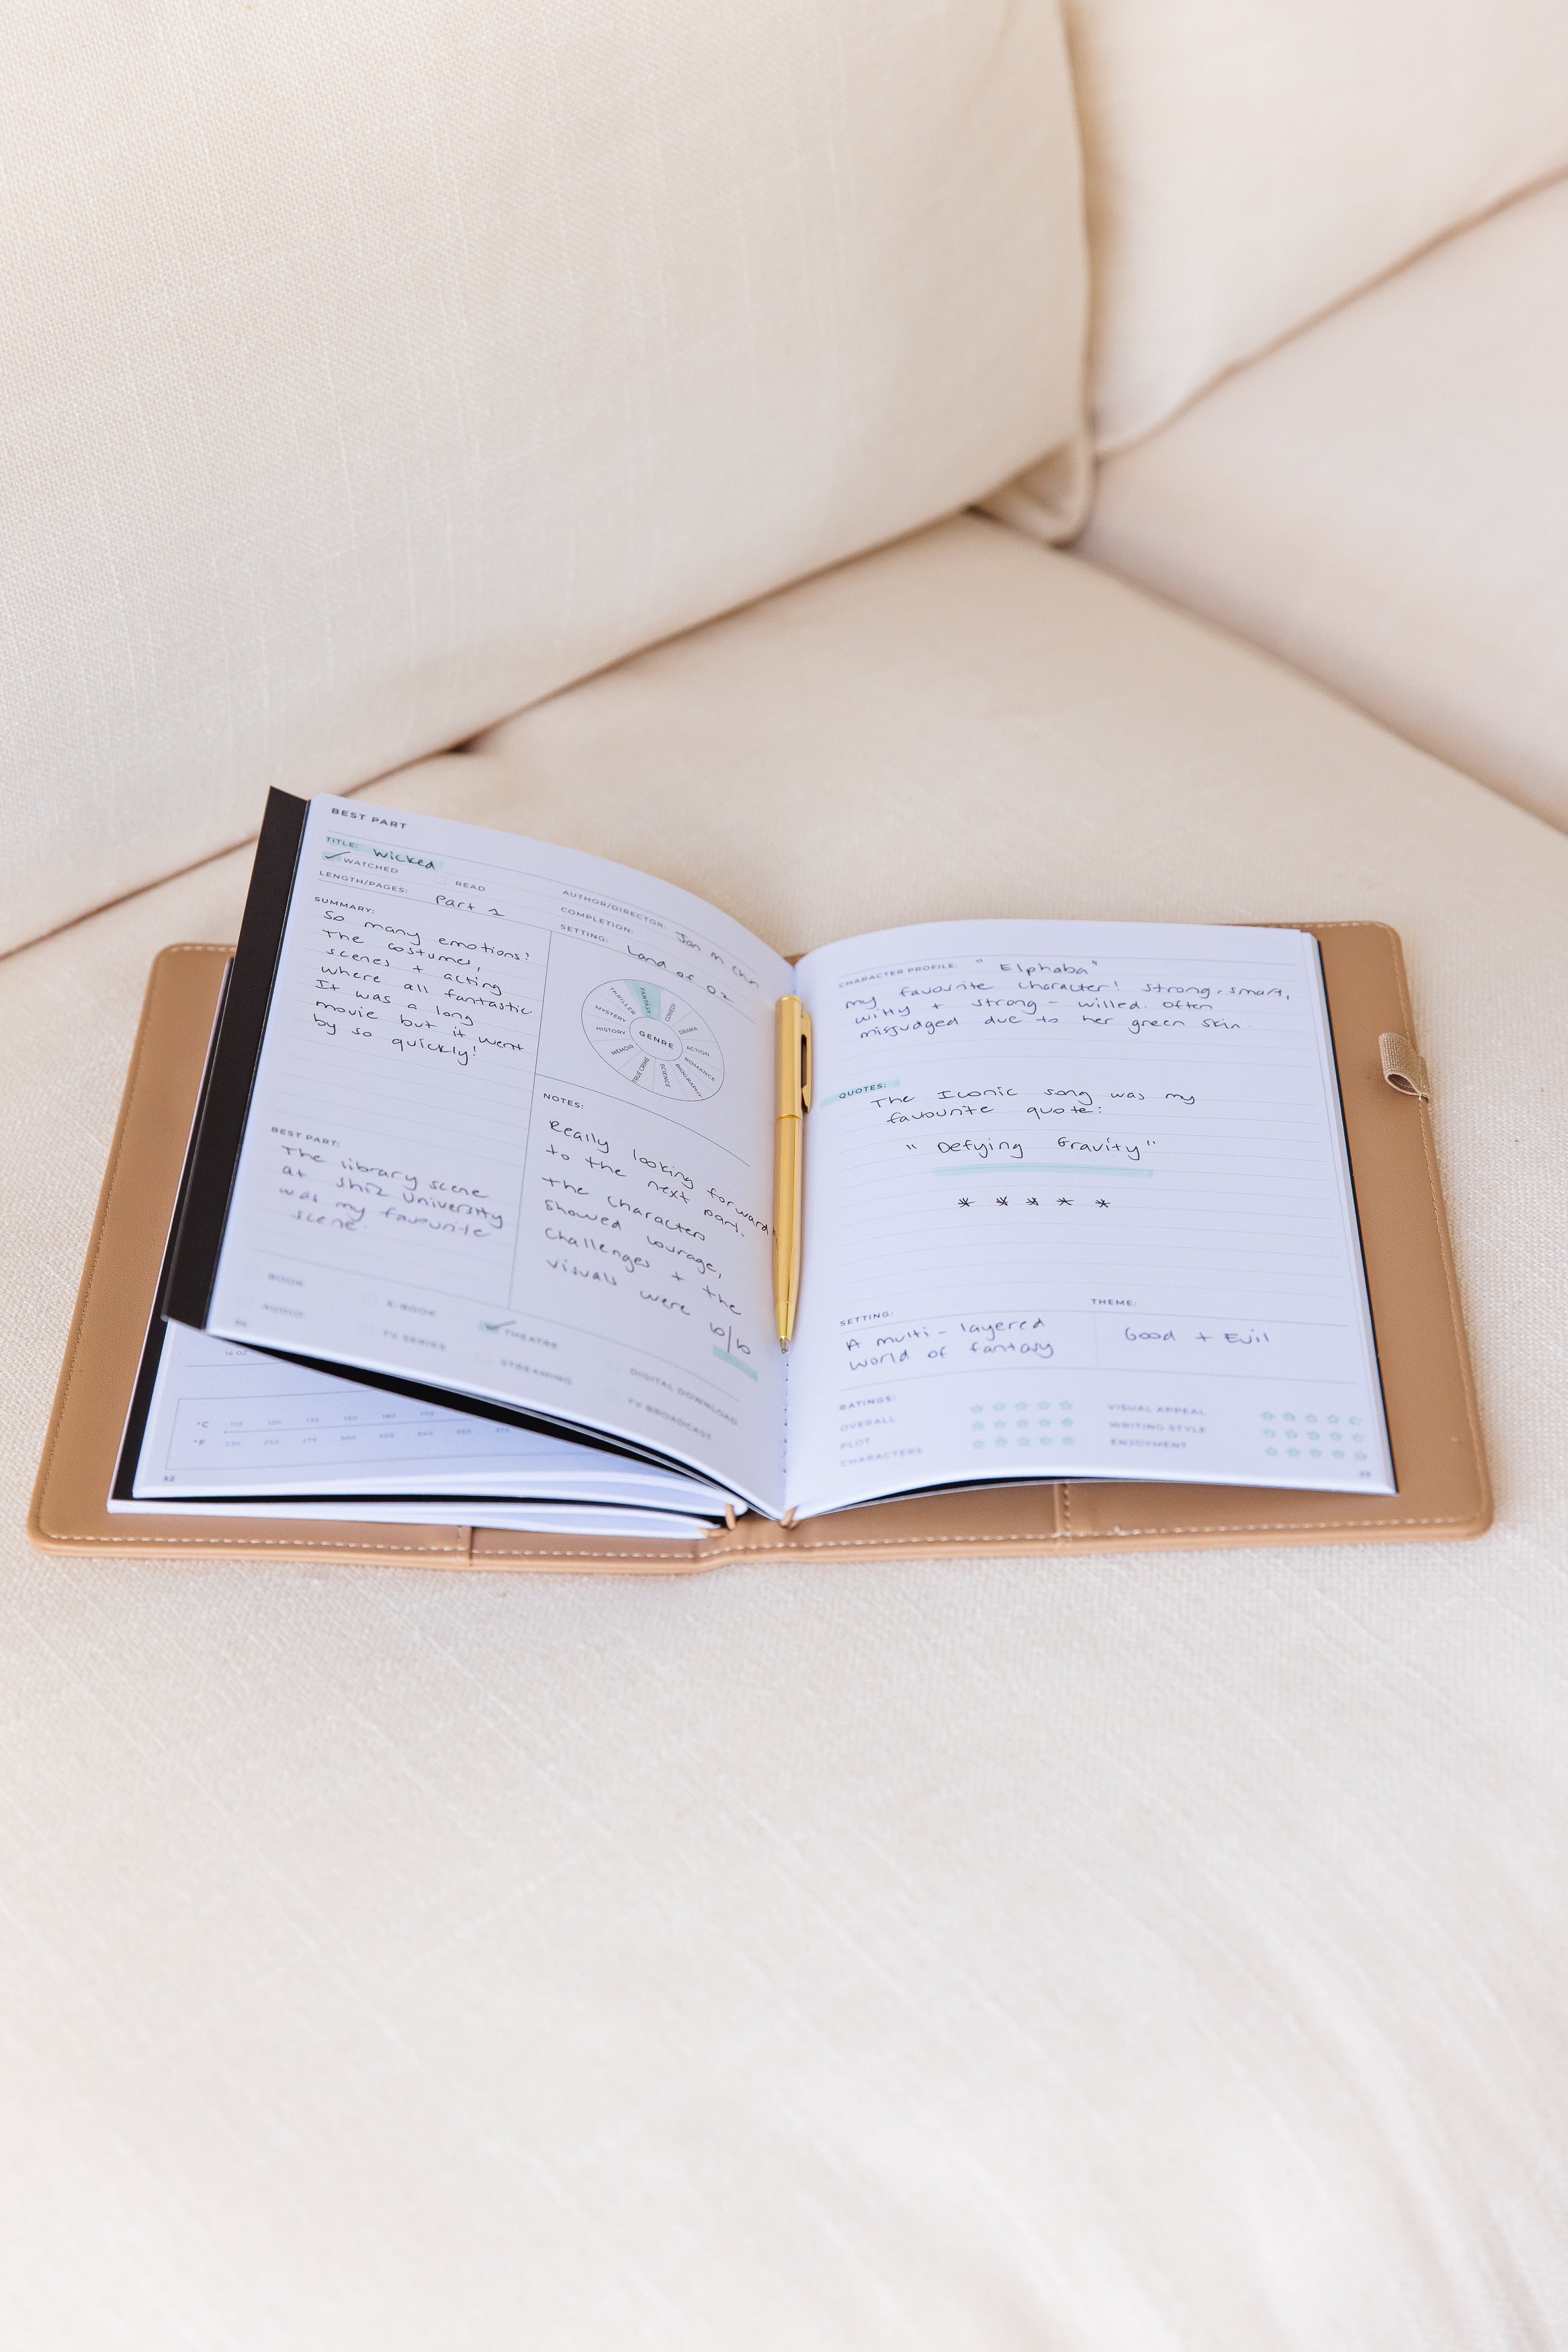 BEST PART
TITLE: Wicked
WATCHED
READ
LENGTH/PAGES: Part 1
AUTHOR/DIRECTOR: Jon M Chu
COMPLETION:
SETTING: Land of Oz
SUMMARY:
So many emotions!
The costumes,
scenes + acting
where all fantastic.
It was a long
movie but it went
by so quickly!
GENRE
FANTASY
COMEDY
DRAMA
ACTION
ROMANCE
BIOGRAPHY
SCIENCE
TRUE CRIME
MEMOIR
HISTORY
MYSTERY
THRILLER
BEST PART:
The library scene
at Shiz University
was my favourite
scene.
NOTES:
Really looking forward
to the next part.
The characters
showed courage,
challenges + the
visuals were 10/10
BOOK
E-BOOK
THEATRE
DIGITAL DOWNLOAD
AUDIO
TV SERIES
STREAMING
TV BROADCAST
16 OZ
°C 110 120 135 150 180
°F 230 250 275 300 350
52
CHARACTER PROFILE: "Elphaba"
my favourite character! strong, smart,
witty + strong-willed. Often
misjudged due to her green skin
QUOTES:
The Iconic song was my
favourite quote:
"Defying Gravity"
* * * * *
SETTING:
THEME:
A multi-layered
world of fantasy
Good + Evil
RATINGS:
OVERALL
PLOT
CHARACTERS
VISUAL APPEAL
WRITING STYLE
ENJOYMENT